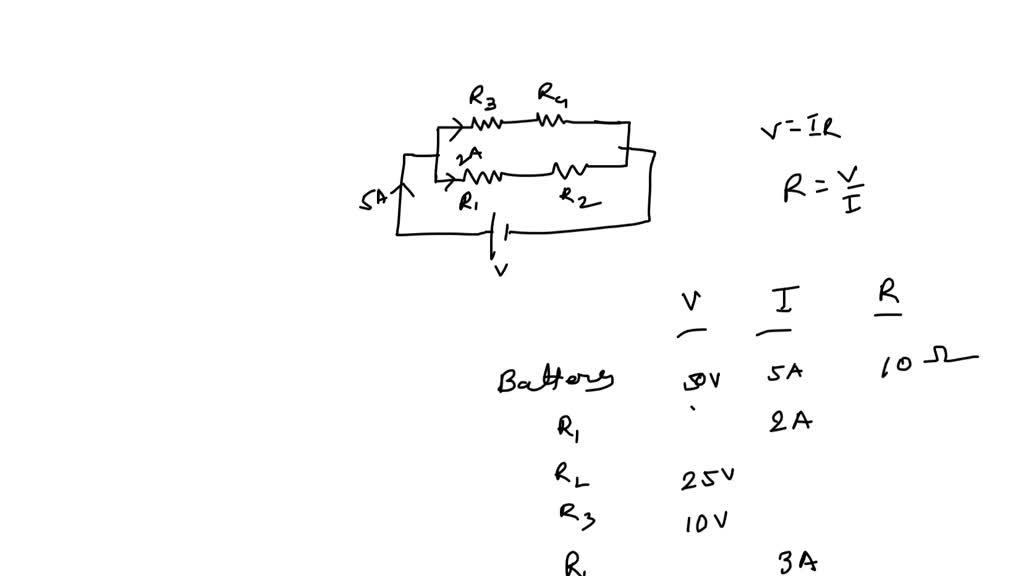 R3 R4
V=IR
2A
5A
R1 R2
R = V/I
V
V I R
Battery 50V 5A 10 Ω
R1 2A
R2 25V
R3 10V
3A